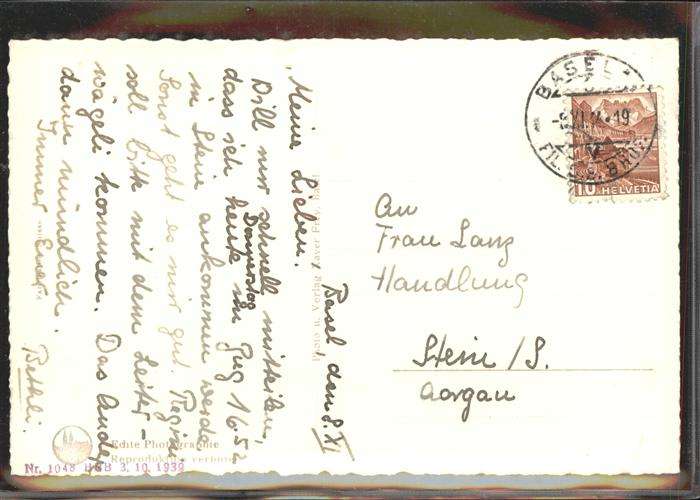 Basel, den 8. XI
Meine Lieben,
Will mir schnell mitteilen,
dass ich heute Donnerstag im Zug 16.52
in Stein ankommen werde.
Sonst geht es mir gut. Regini
soll bitte mit dem Leiter-
wägeli kommen. Das Andere
dann mündlich.
Immer Euer
Bethli.
An
Frau Lanz
Handlung
Stein / S.
Aargau
BASEL
19
HELVETIA
10
Photo u. Verlag Xaver Frey, Basel
Echte Photographie
Reproduktion verboten
Nr. 1048 BRB 3. 10. 1939